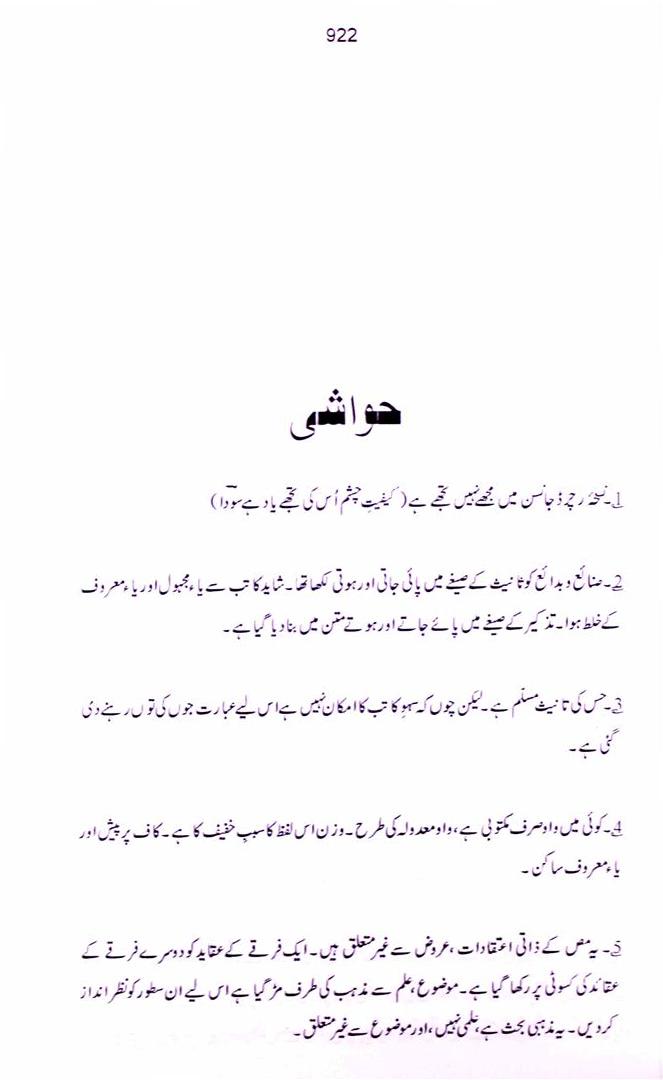 922
حواشی
1۔ نسخۂ رچرڈ جانسن میں مجھے نہیں تجھے ہے (کیفیتِ چشم اُس کی تجھے یاد ہے سودؔا)
2۔ صنائع و بدائع کو تانیث کے صیغے میں پائی جاتی اور ہوتی لکھا تھا۔ شاید کاتب سے یاء مجہول اور یاء معروف
کے خلط ہوا۔ تذکیر کے صیغے میں پائے جاتے اور ہوتے متن میں بنا دیا گیا ہے۔
3۔ جس کی تانیث مسلّم ہے۔ لیکن چوں کہ سہوِ کاتب کا امکان نہیں ہے اس لیے عبارت جوں کی توں رہنے دی
گئی ہے۔
4۔ کوئی میں واو صرف مکتوبی ہے، واو معدولہ کی طرح۔ وزن اس لفظ کا سببِ خفیف کا ہے۔ کاف پر پیش اور
یاء معروف ساکن۔
5۔ یہ مص کے ذاتی اعتقادات، عروض سے غیر متعلق ہیں۔ ایک فرقے کے عقاید کو دوسرے فرقے کے
عقائد کی کسوٹی پر رکھا گیا ہے۔ موضوع، علم سے مذہب کی طرف مڑ گیا ہے اس لیے ان سطور کو نظر انداز
کر دیں۔ یہ مذہبی بحث ہے، علمی نہیں، اور موضوع سے غیر متعلق۔